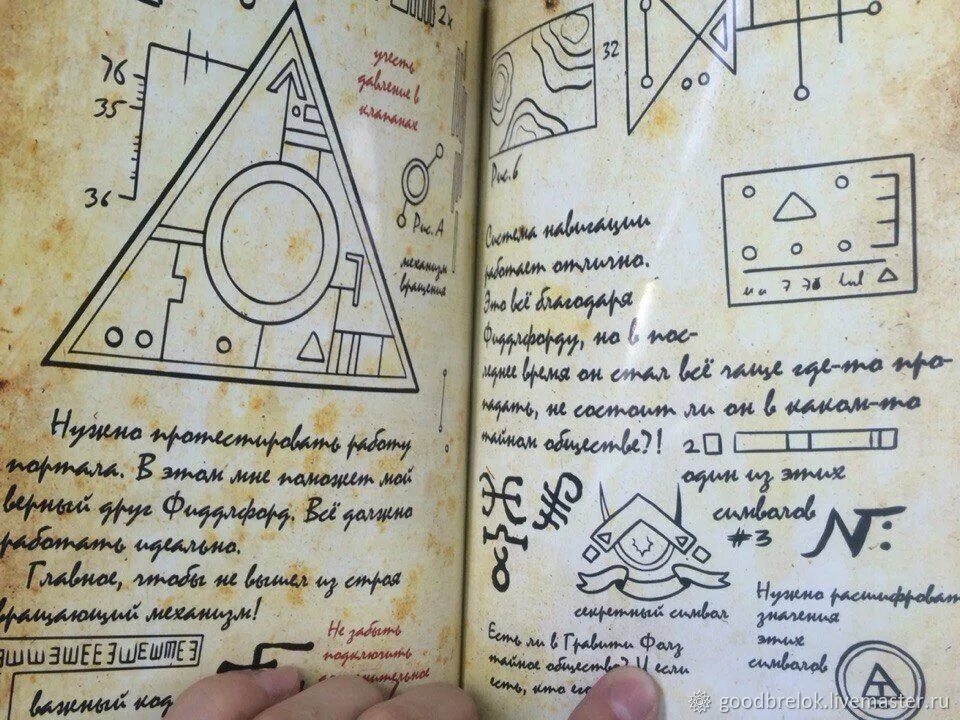 2х
76
35
36
учесть
давление в
клапанах
Рис. А
механизм
вращения
Нужно протестировать работу
портала. В этом мне поможет мой
верный друг Фиддлфорд. Всё должно
работать идеально.
Главное, чтобы не вышел из строя
вращающий механизм!
важный код
Не забыть
подключить
32
Рис.6
Система навигации
работает отлично.
Это всё благодаря
Фиддлфорду, но в пос-
леднее время он стал всё чаще где-то про-
падать, не состоит ли он в каком-то
тайном обществе?!
2
один из этих
символов
#3
секретный символ
Есть ли в Гравити Фолз
тайное общество? И если
есть, кто
Нужно расшифровать
значения
этих
символов
goodbrelok.livemaster.ru